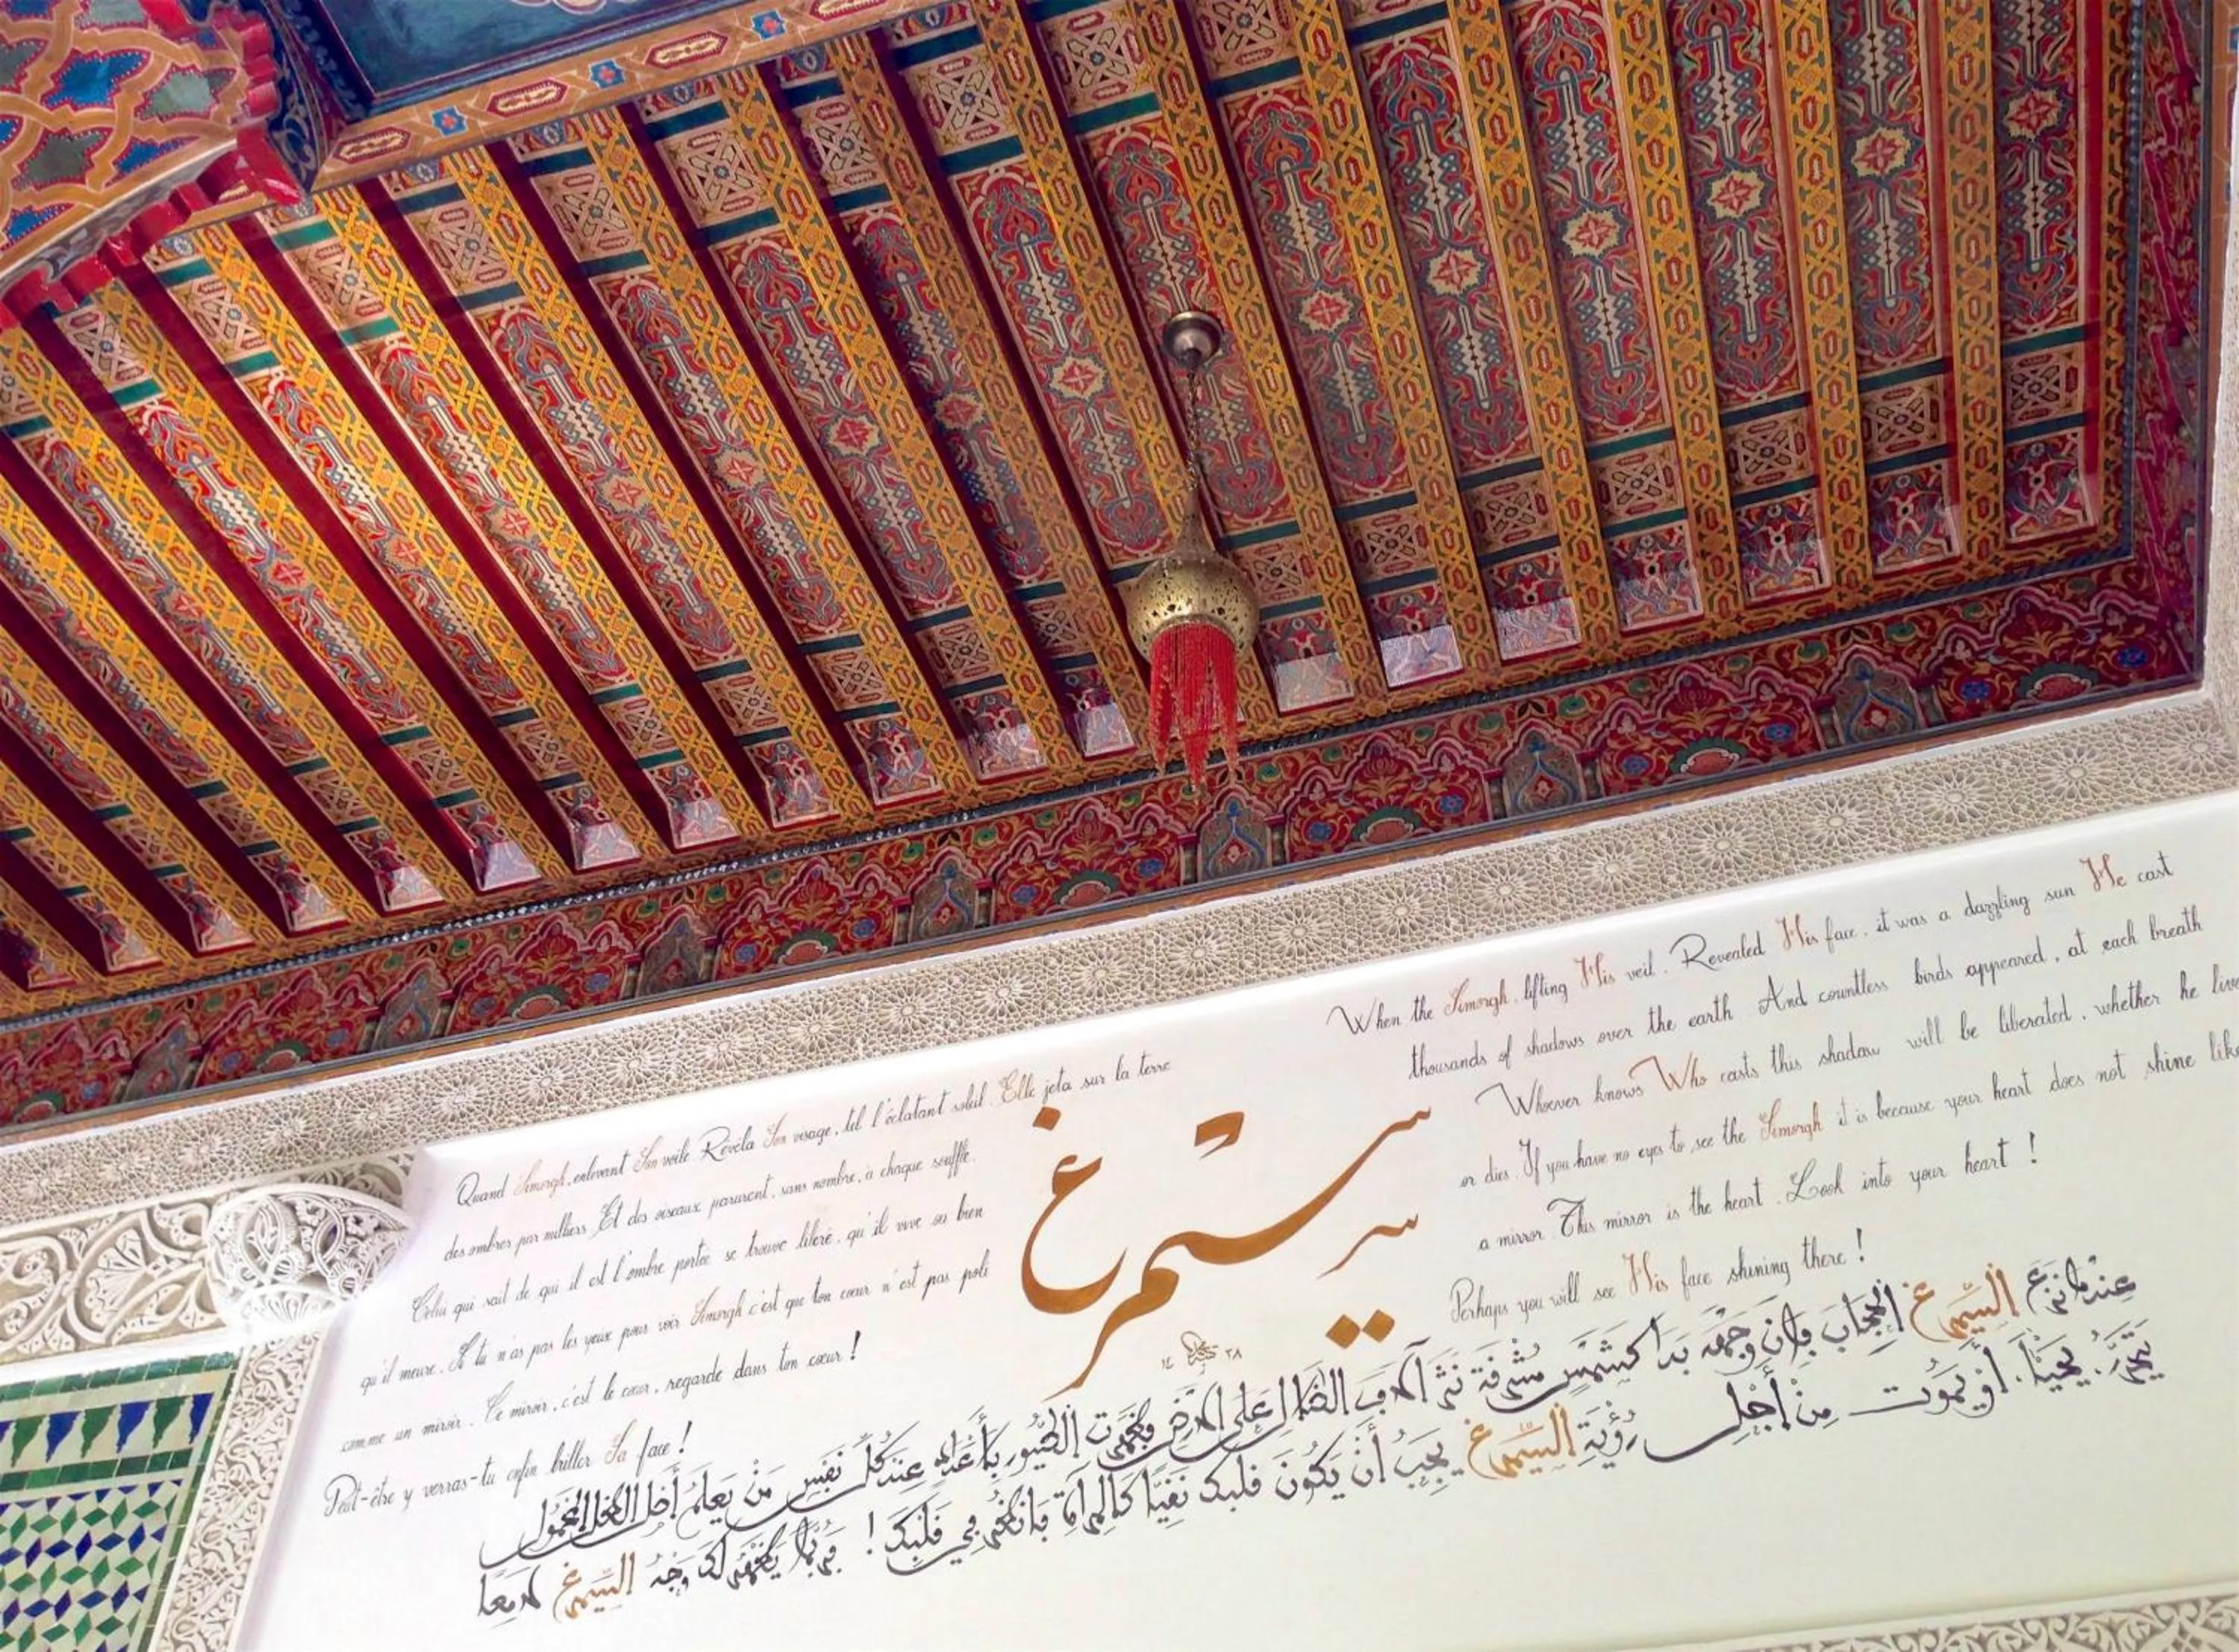 Quand Simorgh, enlevant Son voile Révéla Son visage, tel l'éclatant soleil. Elle jeta sur la terre
des ombres par milliers. Et des oiseaux parurent, sans nombre, à chaque souffle.
Celui qui sait de qui il est l'ombre portée se trouve libéré, qu'il vive ou bien
qu'il meure. Si tu n'as pas les yeux pour voir Simorgh c'est que ton cœur n'est pas poli
comme un miroir. Ce miroir, c'est le cœur, regarde dans ton cœur!
Peut-être y verras-tu enfin briller Sa face!
سيمرغ
١٤ ٢٨
When the Simorgh, lifting His veil. Revealed His face, it was a dazzling sun He cast
thousands of shadows over the earth. And countless birds appeared, at each breath
Whoever knows Who casts this shadow will be liberated, whether he live
or dies. If you have no eyes to see the Simorgh it is because your heart does not shine like
a mirror. This mirror is the heart. Look into your heart!
Perhaps you will see His face shining there!
عندما نزع السيمرغ الحجاب وبان وجهه بدا كشمس مشرقة نثر آلاف الظلال على الأرض فظهرت الطيور بأعداد عند كل نفس من يعلم أصل الظل
يتحرر. يحيا، أو يموت من أجل رؤية السيمرغ يجب أن يكون قلبك نقيا كالمرآة فانظر في قلبك! فربما يظهر لك وجه السيمرغ لامعا